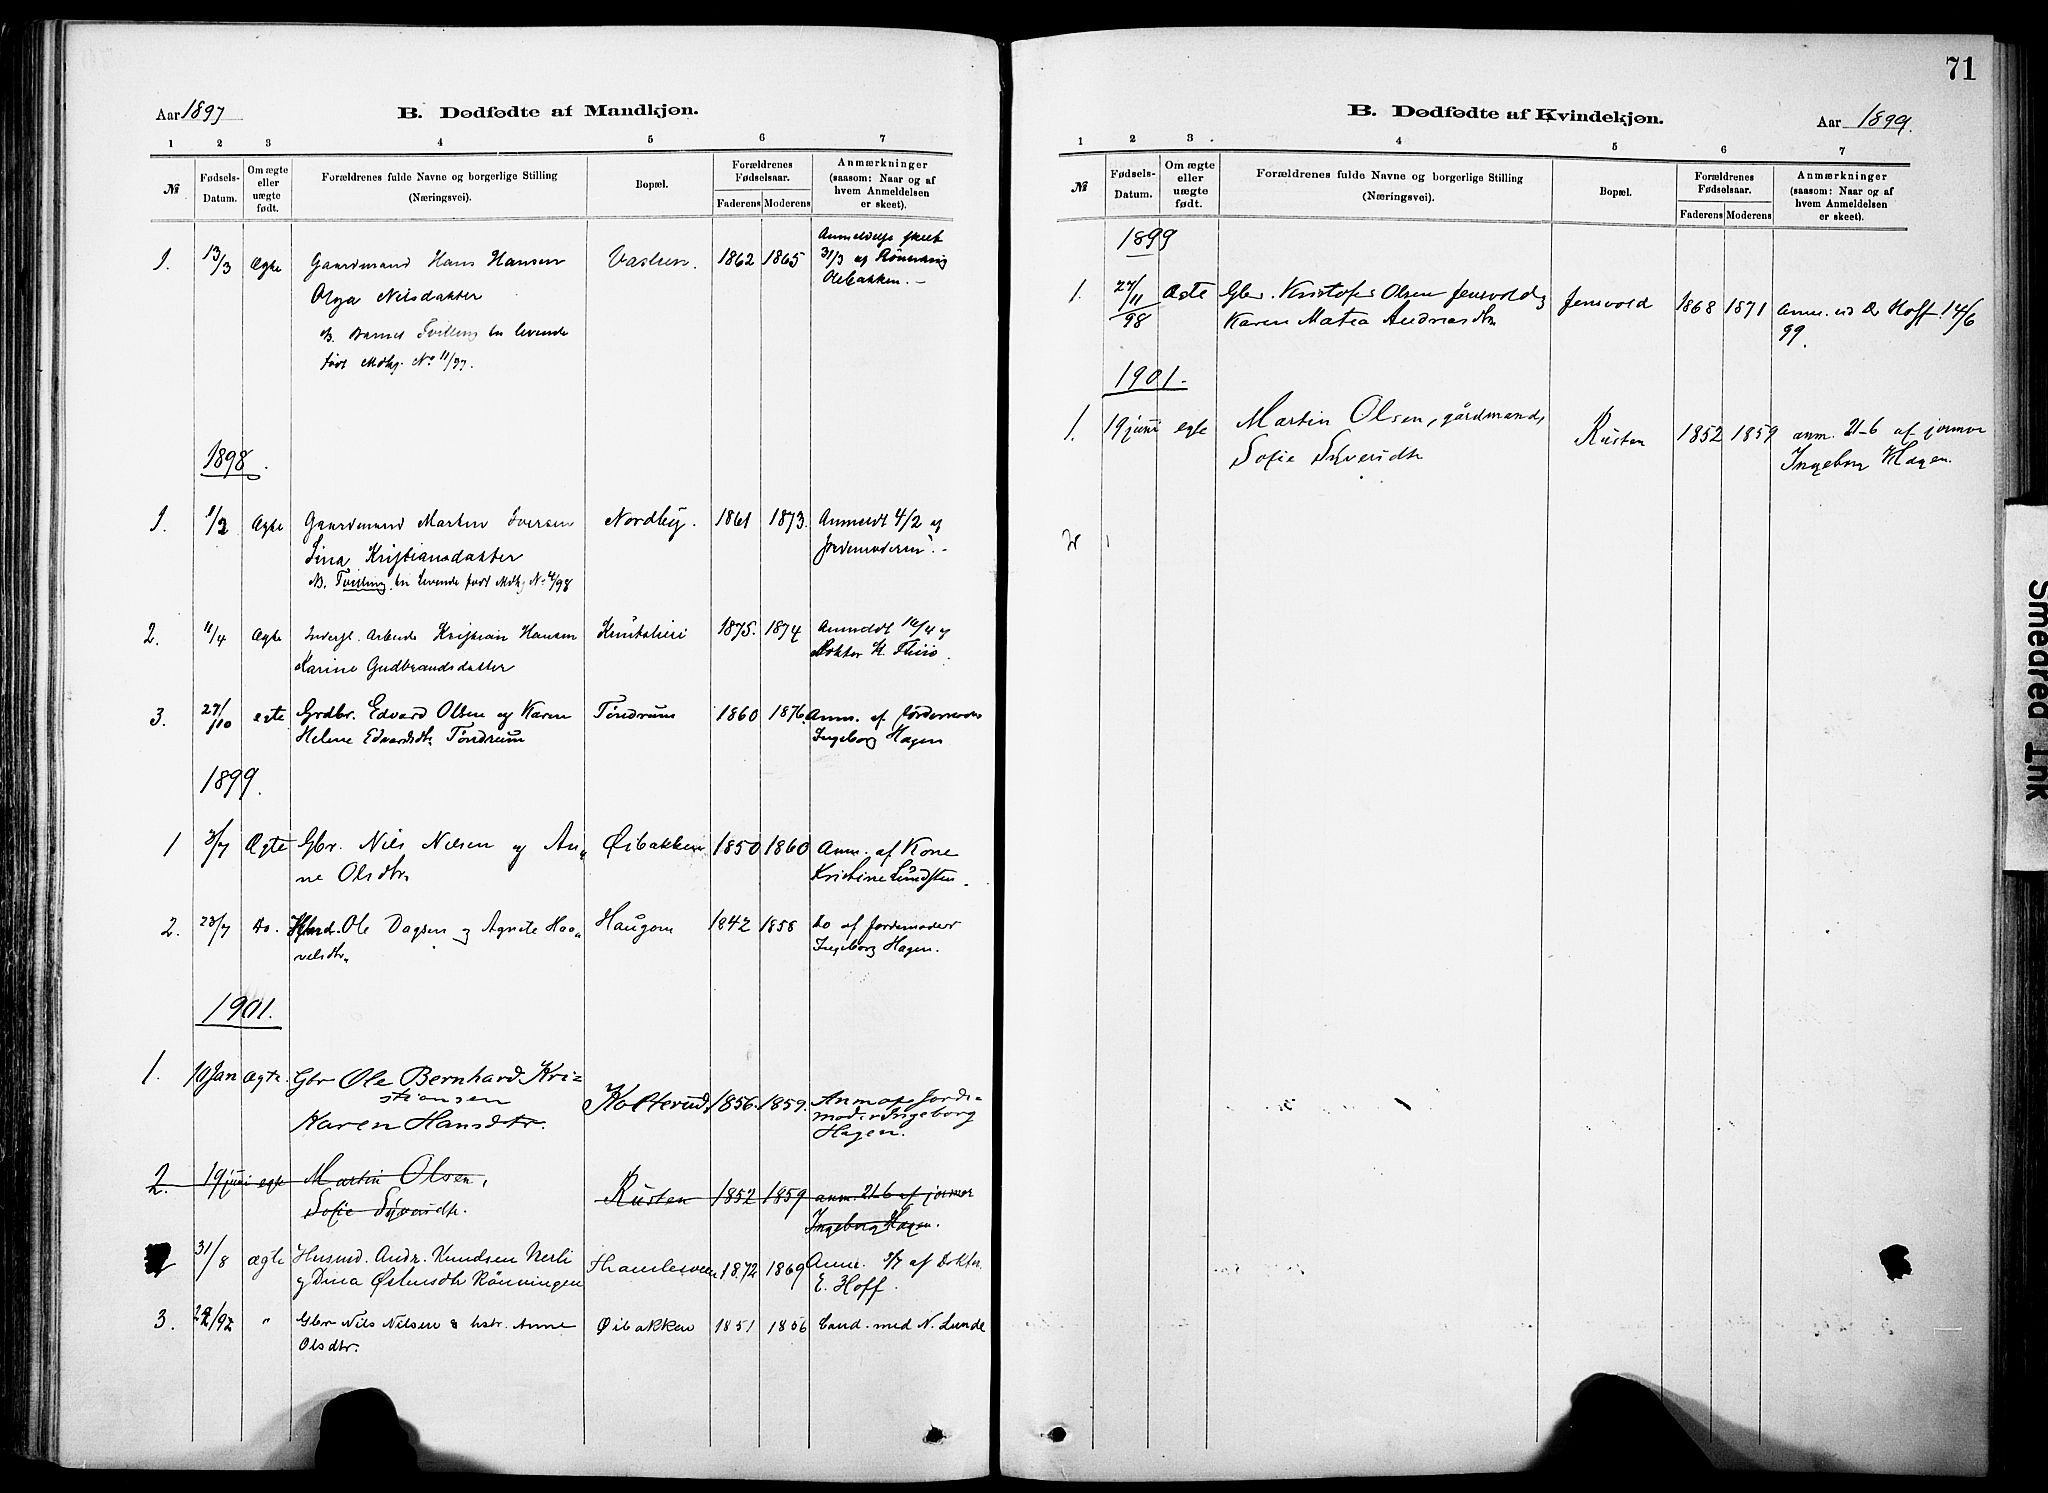 Aar 1897.
B. Dødfødte af Mandkjøn.
1 2 3 4 5 6 7
№
Fødsels-Datum.
Om ægte eller uægte født.
Forældrenes fulde Navne og borgerlige Stilling
(Næringsvei).
Bopæl.
Forældrenes Fødselsaar.
Faderens Moderens
Anmærkninger
(saasom: Naar og af
hvem Anmeldelsen
er skeet).
1. 13/3 Ægte Gaardmand Hans Hansen Vastuen. 1862 1865 Anmeldelse skeet
31/3 af
Olga Nilsdatter Olebakken.
B. Barnet Tvilling en levende
født Mdkj. No 11/97.
1898.
1. 1/2 Ægte Gaardmand Martin Iversen Nordby. 1861 1873. Anmeldt 4/2 af
Lina Kristiansdatter Jordemoderen.
B. Tvilling en Levende født Mdkj No 4/98
2. 11/4 Ægte Arbeider Kristian Hansen 1875. 1874 Anmeldt 16/4 af
Karine Gudbrandsdatter Doktor K. Thiis.
3. 27/10 egte Grdbr. Edvard Olsen og Karen Tøndrum 1860 1876. Anm. af Jordemoder
Helene Edvardsdtr Tøndrum Ingeborg Hagen
1899.
1 3/7 Ægte Gbr. Nils Nilsen og An- Øibakken 1850 1860 Anm. af Kone
ne Olsdtr Kristine Lundsten.
2. 23/7 Do. Ole Dagsen og Agnete Haa- Haugom 1842 1858 Do af Jordemoder
velsdtr. Ingeborg Hagen.
1901.
1. 10 Jan Ægte. Gbr Ole Bernhard Kri-
stiansen Kolterud. 1856. 1859. Anm af Jorde-
moder Ingeborg
Karen Hansdtr. Hagen.
2. 19 juni egte Martin Olsen,
Sofie Syversdtr. Rusten 1852 1859 anm. 21-6 af jormor
Ingeborg Hagen.
31/8 ægte Husmd. Andr. Knudsen Nerli 1872 1869 Anm. 3/7 af Doktor
og Dina Østensdtr Rønningen E. Hoff.
3. 22/92 " Gbr Nils Nilsen & hstr. Anne Øibakken 1851 1856 Cand. med N. Lunde
Olsdtr.
71
B. Dødfødte af Kvindekjøn.
Aar 1899.
1 2 3 4 5 6 7
№
Fødsels-Datum.
Om ægte eller uægte født.
Forældrenes fulde Navne og borgerlige Stilling
(Næringsvei).
Bopæl.
Forældrenes Fødselsaar.
Faderens Moderens
Anmærkninger
(saasom: Naar og af
hvem Anmeldelsen
er skeet).
1899
1. 27/11 98 Ægte Gbr. Kristofer Olsen Jensvold og Jensvold 1868 1871 Anm. ved Dr Hoff. 14/6
Karen Matea Andreasdtr 99.
1901.
1. 19 juni egte Martin Olsen, gårdmand, Rusten 1852 1859 anm. 21-6 af jormor
Sofie Syversdtr Ingeborg Hagen.
Smeared Ink